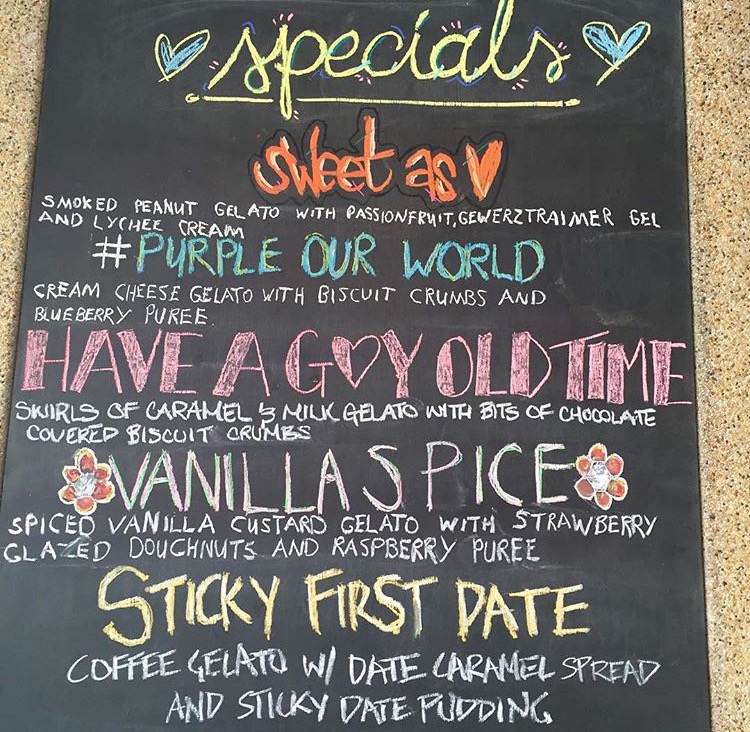 specials
sweet as
SMOKED PEANUT GELATO WITH PASSIONFRUIT, GEWERZTRAIMER GEL
AND LYCHEE CREAM
#PURPLE OUR WORLD
CREAM CHEESE GELATO WITH BISCUIT CRUMBS AND
BLUEBERRY PUREE.
HAVE A G♡Y OLD TIME
SWIRLS OF CARAMEL & MILK GELATO WITH BITS OF CHOCOLATE
COVERED BISCUIT CRUMBS
VANILLA SPICE
SPICED VANILLA CUSTARD GELATO WITH STRAWBERRY
GLAZED DOUGHNUTS AND RASPBERRY PUREE
STICKY FIRST DATE
COFFEE GELATO W/ DATE CARAMEL SPREAD
AND STICKY DATE PUDDING